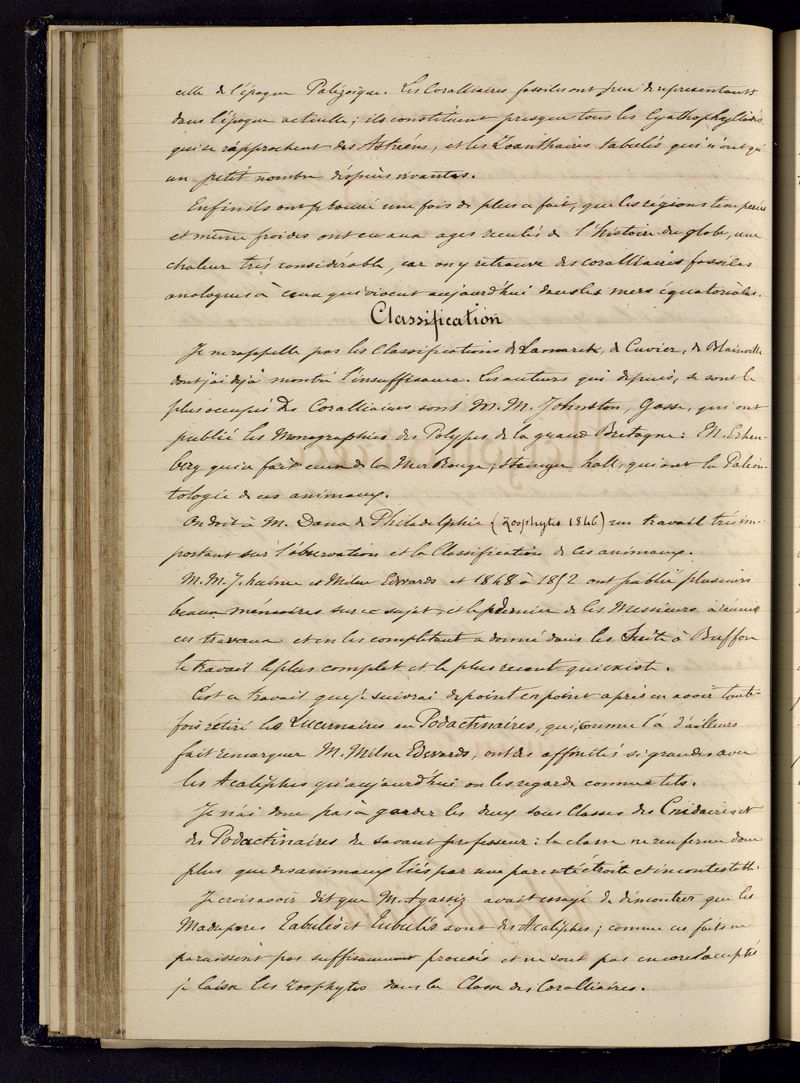 celle de l'époque Paléozoïque. Les Coralliaires fossiles ont peu de représentants
dans l'époque actuelle; ils constituent presque tous les Cyathophyllidés
qui se rapprochent des Astréens, et les Zoanthaires tabulés qui n'ont qu'
un petit nombre d'espèces vivantes.
Enfin ils ont prouvé une fois de plus ce fait, que les régions tempérées
et même froides ont eu aux ages reculés de l'histoire du globe, une
chaleur très considérable, car on y retrouve des coralliaires fossiles
analogues à ceux qui vivent aujourd'hui dans les mers équatoriales.
Classification
Je ne rappelle pas les Classifications de Lamarck, de Cuvier, de Blainville
dont j'ai déjà montré l'insuffisance. Les auteurs qui depuis, se sont le
plus occupés des Coralliaires sont M.M. Johnston, Gosse, qui ont
publié les Monographies des Polypes de la grand Bretagne: M. Erhen-
berg qui a fait ceux de la Mer Rouge, Hall, qui ont la Paléon-
tologie de ces animaux.
On doit à M. Dana de Philadelphie (Zoophytes 1846) un travail très im-
portant sur l'observation et la Classification de ces animaux.
M.M. J. haime et Milne Edwards et 1848 à 1852 ont publié plusieurs
beaux mémoires sur ce sujet, et le dernier de ces Messieurs a réuni
ces travaux et en les complétant a donné dans les Suite à Buffon
le travail le plus complet et le plus récent qui existe.
C'est ce travail que je suivrai de point en point après en avoir toute-
fois retiré les Lucernaires ou Podactinaires, qui, comme l'a d'ailleurs
fait remarquer M. Milne Edwards, ont des affinités si grandes avec
les Acalèphes qu'aujourd'hui on les regarde comme tels.
Je n'ai donc pas à garder les deux sous Classes des Cnidaires et
des Podactinaires du savant professeur: la classe ne renferme donc
plus que des animaux liés par une parenté étroite et incontestable.
Je crois avoir dit que M. Agassiz avait essayé de démontrer que les
Madrépores Tabulés et Tubulés sont des Acalèphes; comme ces faits ne
paraissent pas suffisamment prouvés et ne sont pas encore acceptés
je laisse les Zoophytes dans la Classe des Coralliaires.